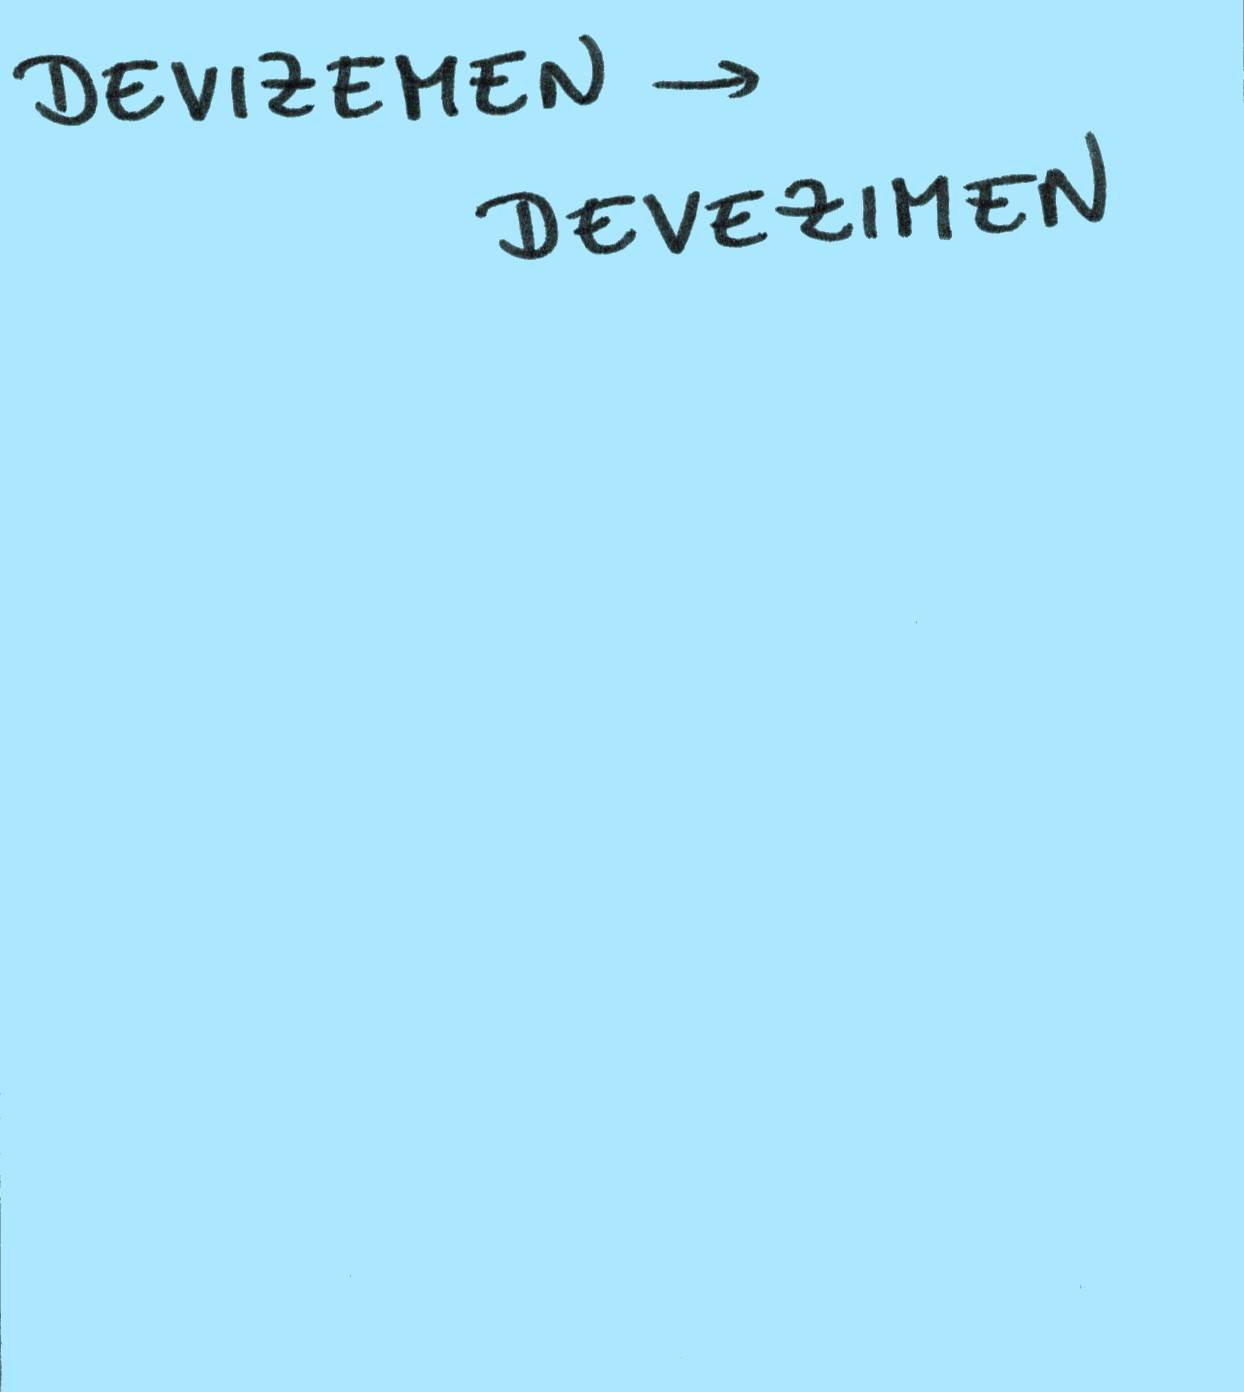 DEVIZEMEN →
DEVEZIMEN